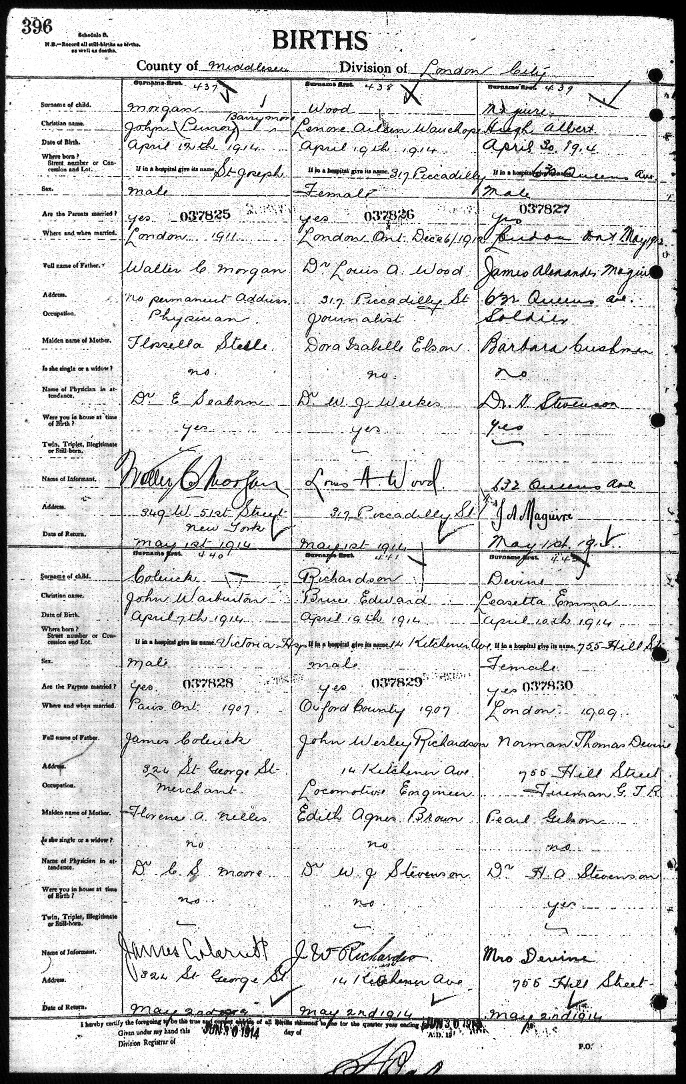 396
Schedule B.
N.B.—Record all still-births as births, as well as deaths.
BIRTHS
County of Middlesex Division of London City
Surname first. 437 Surname first. 438 Surname first. 439
Surname of child. Morgan Wood Maguire
Christian name. John Barrymore Lenore Aileen Wauchope Hugh Albert
Date of Birth. April 12th 1914 April 19th 1914 April 30, 1914
Where born? Street number or Concession and Lot. If in a hospital give its name. St Joseph If in a hospital give its name. 317 Piccadilly If in a hospital give its name. 632 Queens Ave
Sex. male Female Male
Are the Parents married? yes 037825 yes 037826 yes 037827
Where and when married. London 1911 London Ont. Dec 26/1912 London Ont May
Full name of Father. Walter C. Morgan Dr Louis A. Wood James Alexander Maguire
Address. No permanent Address 317 Piccadilly St 632 Queens Ave.
Occupation. Physician Journalist Soldier
Maiden name of Mother. Flossella Steele Dora Isabelle Elson Barbara Cushman
Is she single or a widow? no no no
Name of Physician in attendance. Dr E Seaborn Dr W J Weekes Dr. H Stevenson
Were you in house at time of Birth? yes yes yes
Twin, Triplet, Illegitimate or Still-born.
Name of Informant. Walter C Morgan Louis A. Wood 632 Queens Ave
Address. 349 W. 51st Street New York 317 Piccadilly St J A Maguire
Date of Return. May 1st 1914 May 1st 1914 May 1st
Surname first. 440 Surname first. 441 Surname first. 442
Surname of child. Colerick Richardson Devine
Christian name. John Warburton Bruce Edward Learetta Emma
Date of Birth. April 7th 1914 April 19th 1914 April 10th 1914
Where born? Street number or Concession and Lot. If in a hospital give its name. Victoria Hsp If in a hospital give its name. 14 Kitchener Ave If in a hospital give its name. 755 Hill St
Sex. male male Female
Are the Parents married? Yes. 037828 yes 037829 yes 037830
Where and when married. Paris Ont 1907 Oxford County 1907 London 1909
Full name of Father. James Colerick John Wesley Richardson Norman Thomas Devine
Address. 324 St George St 14 Kitchener Ave. 755 Hill Street
Occupation. Merchant Locomotive Engineer Fireman G.T.R
Maiden name of Mother. Florence A. Nelles Edith Agnes Brown Pearl Gibson
Is she single or a widow? no no no
Name of Physician in attendance. Dr C S Moore Dr W J Stevenson Dr H A Stevenson
Were you in house at time of Birth? no no yes
Twin, Triplet, Illegitimate or Still-born.
Name of Informant. James Colerick J W Richardson Mrs Devine
Address. 324 St George St 14 Kitchener Ave 755 Hill Street
Date of Return. May 2nd 1914 May 2nd 1914 May 2nd 1914
I hereby certify the foregoing to be the true and correct entries of all Births returned to me for the quarter year ending JUN 30 1914 A.D. 19
Given under my hand this JUN 30 1914 day of
Division Registrar of P.O.